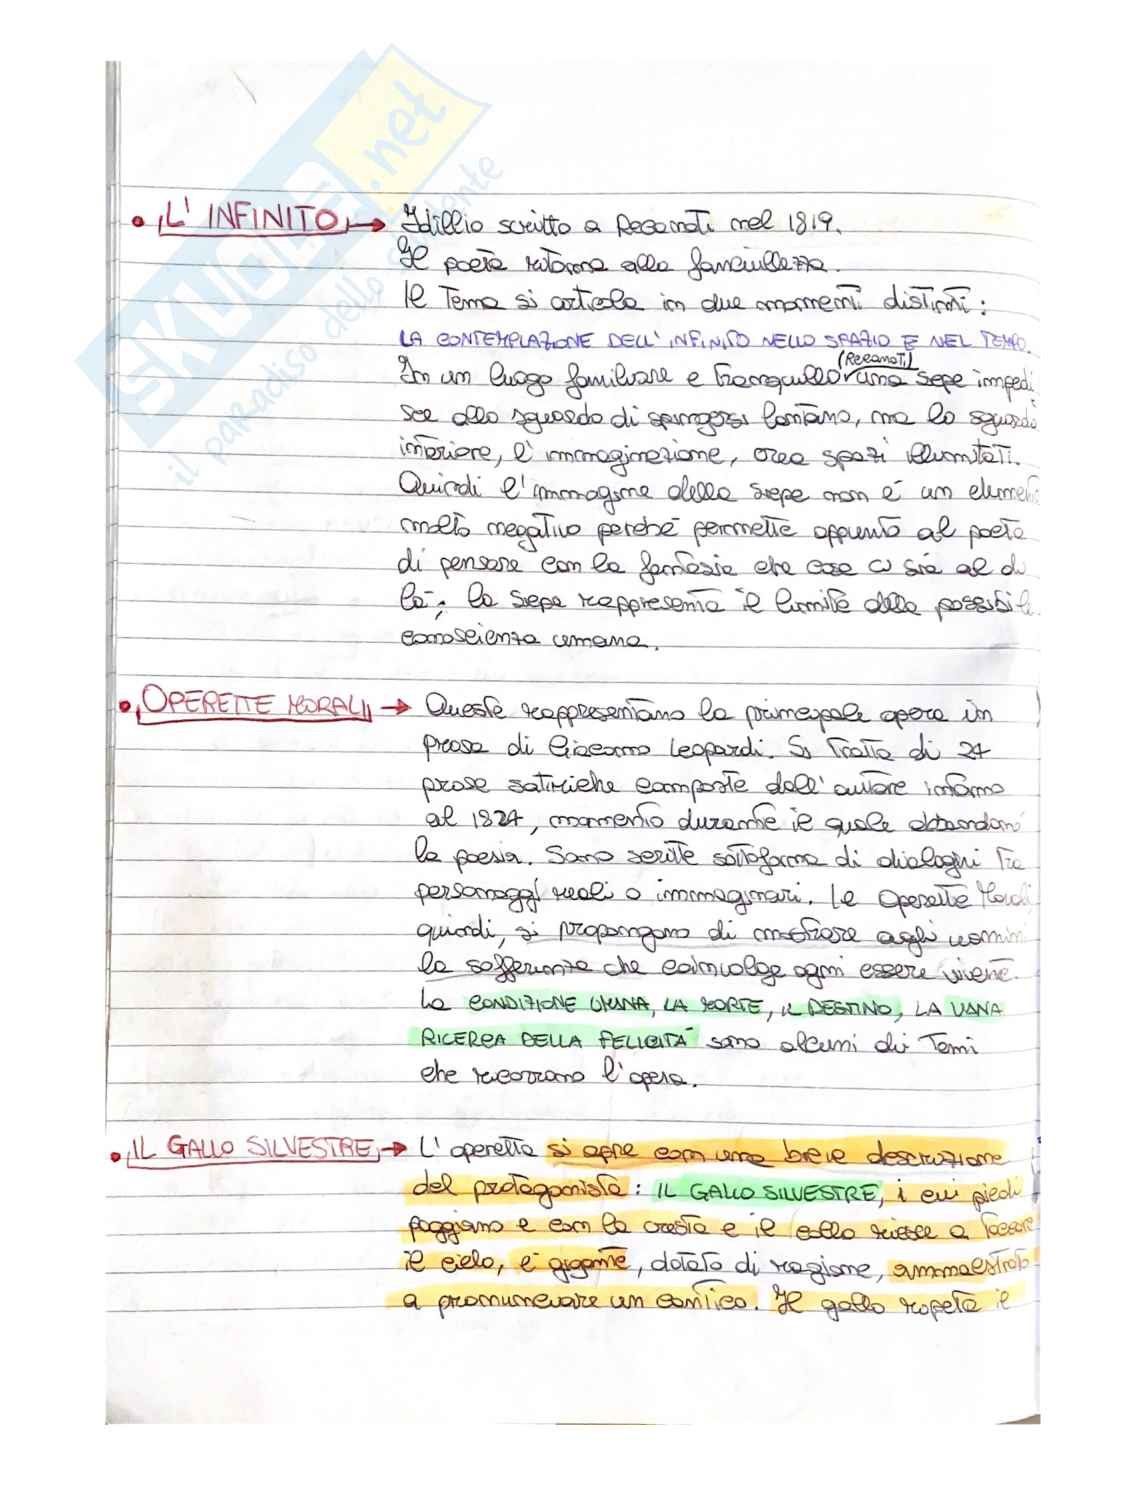 SKUOLA.net
il paradiso dello studente
• L'INFINITO → Idillio scritto a Recanati nel 1819.
Il poeta ritorna alla fanciullezza.
Il tema si articola in due momenti distinti:
LA CONTEMPLAZIONE DELL'INFINITO NELLO SPAZIO E NEL TEMPO.
(Recanati)
In un luogo familiare e tranquillo una siepe impedi
sce allo sguardo di spingersi lontano, ma lo sguardo
interiore, l'immaginazione, crea spazi illimitati.
Quindi l'immagine della siepe non é un element
molto negativo perché permette appunto al poeta
di pensare con la fantasia che cosa ci sia al di
là; la siepe rappresenta il limite della possibil
conoscienza umana.
• OPERETTE MORALI → Queste rappresentano la principale opera in
prosa di Giacomo Leopardi. Si tratta di 24
prose satiriche composte dall'autore intorno
al 1824, momento durante il quale abbandonò
la poesia. Sono scritte sottoforma di dialoghi tra
personaggi reali o immaginari. Le Operette Morali
quindi, si propongono di mostrare agli uomini
la sofferenza che coinvolge ogni essere vivente.
La CONDIZIONE UMANA, LA MORTE, IL DESTINO, LA VANA
RICERCA DELLA FELICITÀ sono alcuni dei temi
che ricorrono l'opera.
• IL GALLO SILVESTRE → L'operetta si apre con una breve descrizione
del protagonista: IL GALLO SILVESTRE, i cui piedi
poggiano e con la cresta e il collo riesce a toccare
il cielo, è gigante, dotato di ragione, ammaestrato
a pronunciare un cantico. Il gallo ripete il